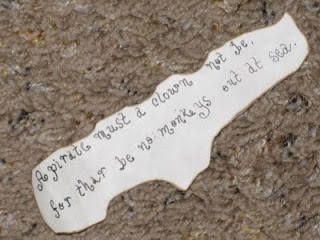 A pirate must a clown not be,
for thar be no monkeys out at sea.